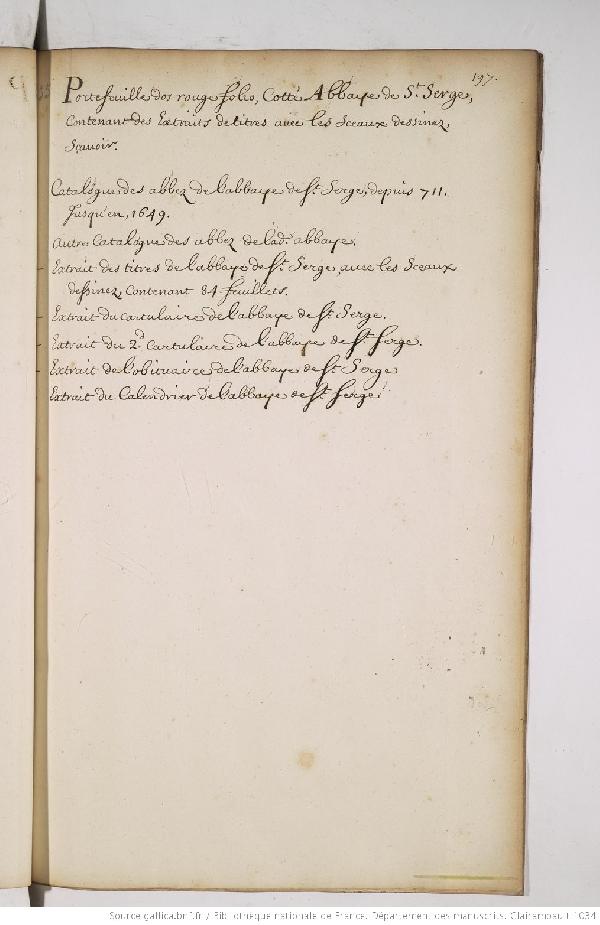 197.
Portefeuille dos rouge folio, Cotté Abbaye de St. Serge,
Contenant des Extraits de titres auec les Sceaux dessinez,
Sçauoir.
Catalogue des abbez de l'abbaye de St. Serge, depuis 711.
Jusqu'en, 1649.
autre Catalogue des abbez de lad. abbaye.
Extrait des titres de l'abbaye de St. Serge, auec les Sceaux
dessinez, Contenant 84 feuillets.
Extrait du cartulaire de l'abbaye de St. Serge.
Extrait du 2d. Cartulaire de l'abbaye de St. Serge.
Extrait de l'obituaire de l'abbaye de St. Serge
Extrait du Calendrier de l'abbaye de St. Serge.
Source gallica.bnf.fr / Bibliothèque nationale de France. Département des manuscrits. Clairambault 1034